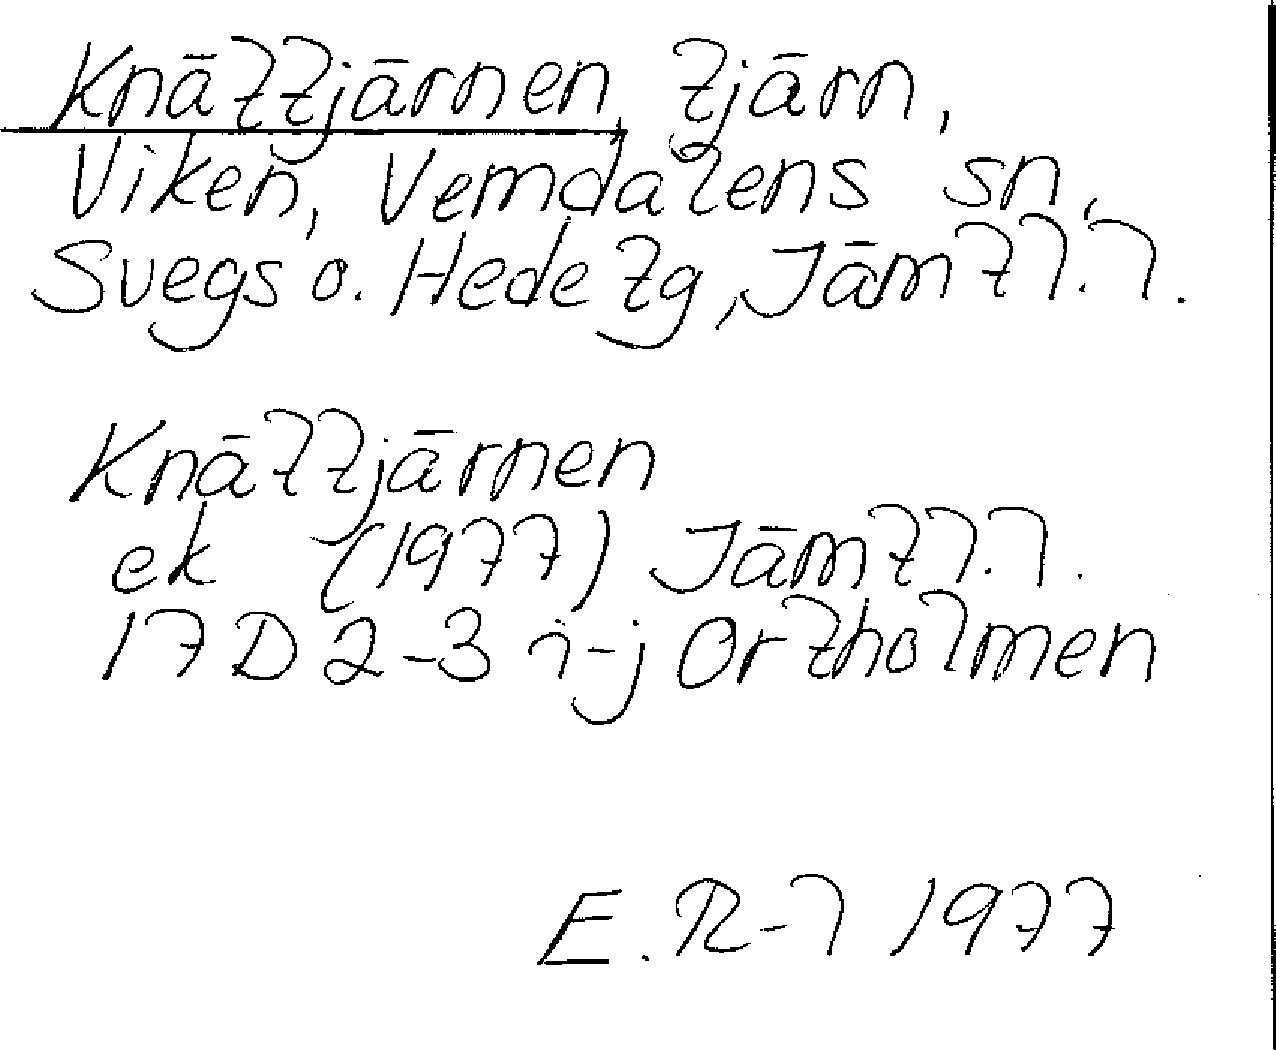 Knättjärnen, tjärn,
Viken, Vemdalens sn,
Svegs o. Hede tg, Jämtl. l.
Knättjärnen
ek (1977) Jämtl. l.
17D 2-3 i-j Ortholmen
E. R-l 1977